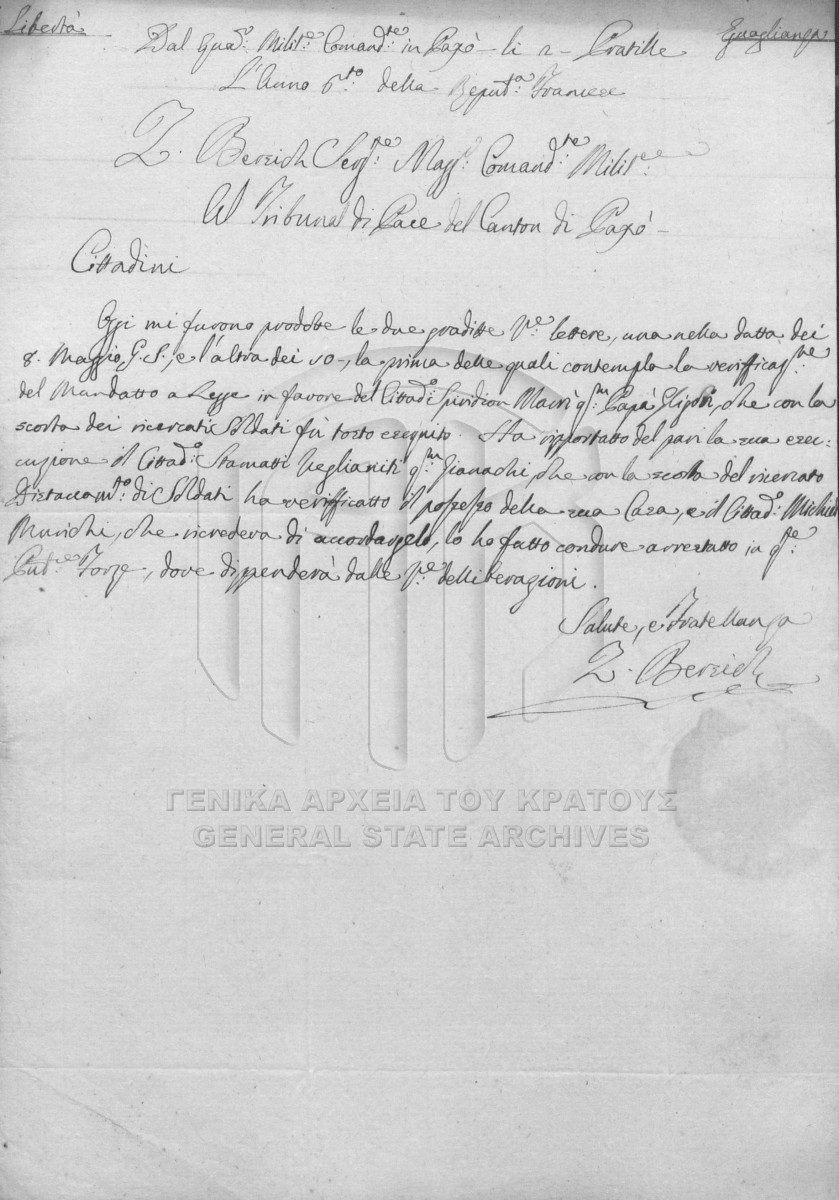 Libertà Eguaglianza
Dal Qua:º Milit:e Comand:te in Paxò li 2 Pratille
L'Anno 6:to della Repub:a Francese
Z. Bersich Serg:te Magg: Comand:te Milit:e
Al Tribunal di Pace del Canton di Paxò
Cittadini
Oggi mi furono prodotte le due graditte V:re lettere, una nella datta dei
8. Maggio, e l'altra dei 10, la prima delle quali contempla la verifficaz:ne
del Mandatto a Legge in favore del Cittad:º Spiridion Macrì q:m Papà Gligori, che con la
scorta dei ricercati Soldati fù tosto eseguito. Ha ripportatto del pari la sua esec-
cuzione il Cittad:º Stamatti Veglianiti q:m Gianachi, che con la scorta del ricercato
Distaccam:to di Soldati ha verifficatto il possesso della sua Casa, e il Cittad:º Michiel
Murichi, che ricredeva di accordarzelo, lo ho fatto condure arrestatto in q:te
Pub:e Forze, dove dippenderà dalle V:re delliberazioni.
Salute, e Fratellanza
Z. Bersich
ΓΕΝΙΚΑ ΑΡΧΕΙΑ ΤΟΥ ΚΡΑΤΟΥΣ
GENERAL STATE ARCHIVES